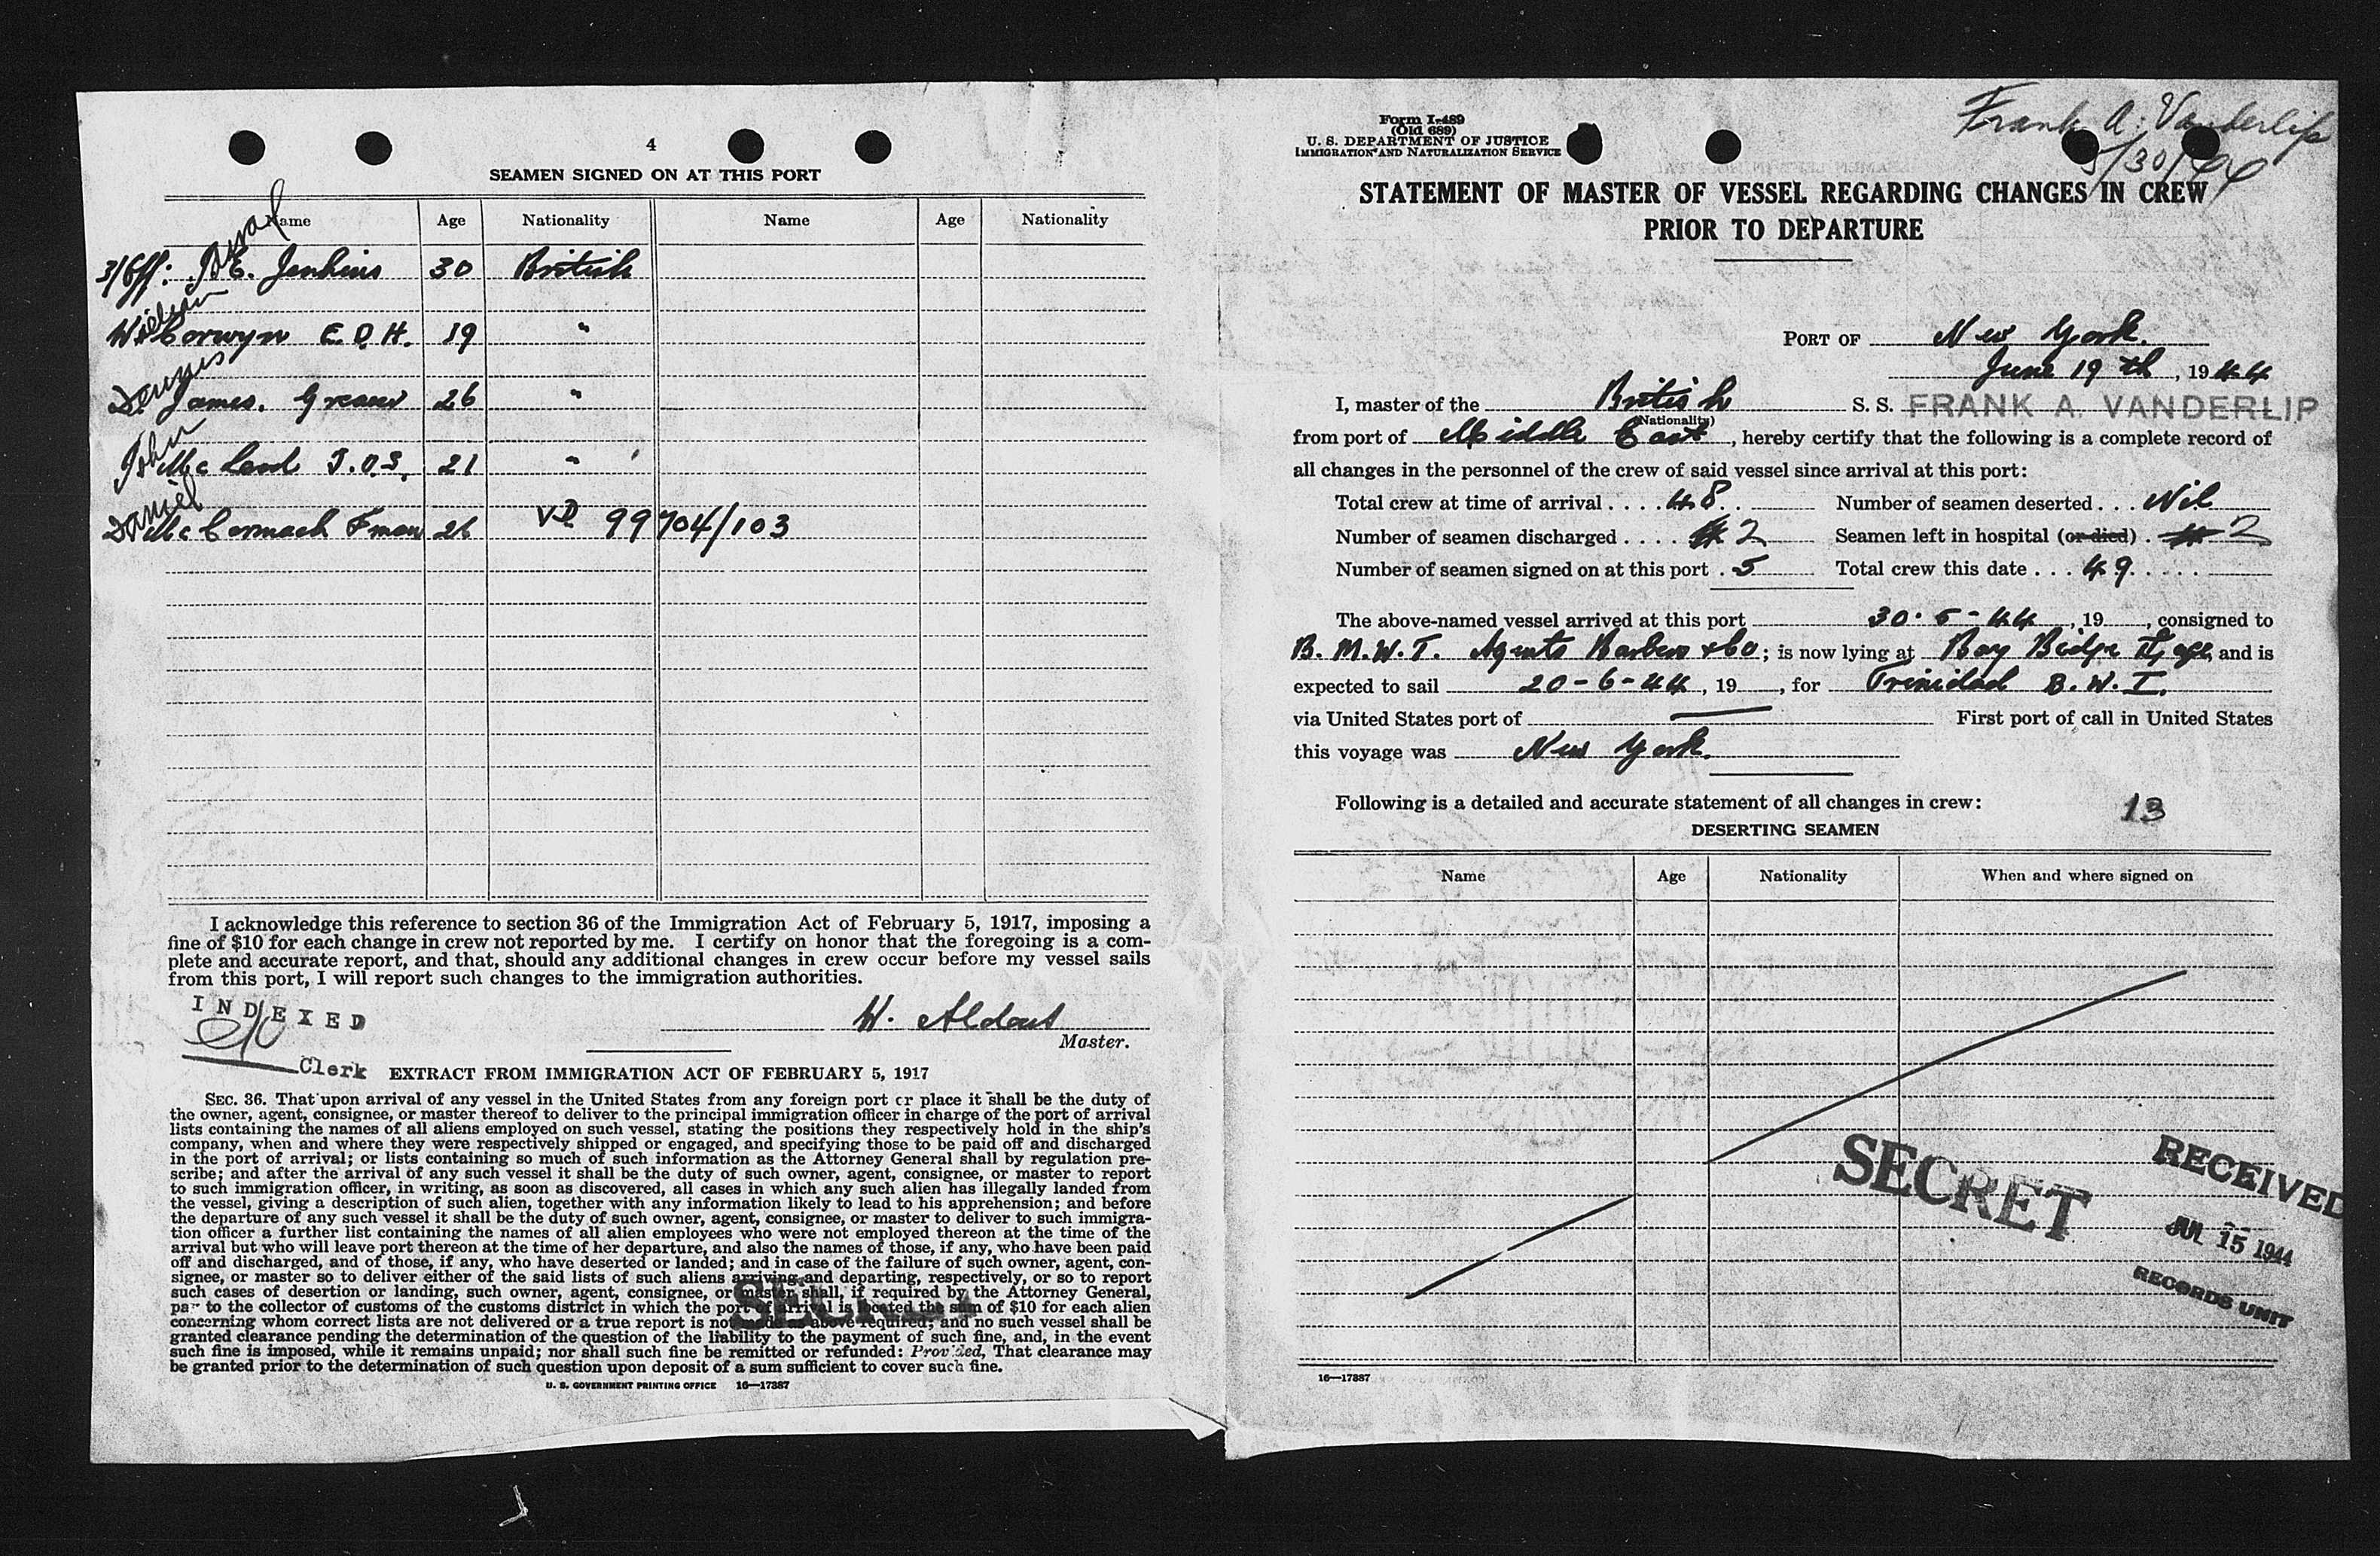 4
SEAMEN SIGNED ON AT THIS PORT
Name Age Nationality Name Age Nationality
3/Off: B.E. Jenkins 30 British
William
Corwyn E.D.H. 19 "
Dennis
James. Greaur 26 "
John
Mc Leod J.O.S. 21 "
Daniel
McCormack Fman 26 VD 99704/103
I acknowledge this reference to section 36 of the Immigration Act of February 5, 1917, imposing a
fine of $10 for each change in crew not reported by me. I certify on honor that the foregoing is a com-
plete and accurate report, and that, should any additional changes in crew occur before my vessel sails
from this port, I will report such changes to the immigration authorities.
INDEXED
W. Aldous
Master.
Clerk
EXTRACT FROM IMMIGRATION ACT OF FEBRUARY 5, 1917
SEC. 36. That upon arrival of any vessel in the United States from any foreign port or place it shall be the duty of
the owner, agent, consignee, or master thereof to deliver to the principal immigration officer in charge of the port of arrival
lists containing the names of all aliens employed on such vessel, stating the positions they respectively hold in the ship's
company, when and where they were respectively shipped or engaged, and specifying those to be paid off and discharged
in the port of arrival; or lists containing so much of such information as the Attorney General shall by regulation pre-
scribe; and after the arrival of any such vessel it shall be the duty of such owner, agent, consignee, or master to report
to such immigration officer, in writing, as soon as discovered, all cases in which any such alien has illegally landed from
the vessel, giving a description of such alien, together with any information likely to lead to his apprehension; and before
the departure of any such vessel it shall be the duty of such owner, agent, consignee, or master to deliver to such immigra-
tion officer a further list containing the names of all alien employees who were not employed thereon at the time of the
arrival but who will leave port thereon at the time of her departure, and also the names of those, if any, who have been paid
off and discharged, and of those, if any, who have deserted or landed; and in case of the failure of such owner, agent, con-
signee, or master so to deliver either of the said lists of such aliens arriving and departing, respectively, or so to report
such cases of desertion or landing, such owner, agent, consignee, or master, shall, if required by the Attorney General,
pay to the collector of customs of the customs district in which the port of arrival is located the sum of $10 for each alien
concerning whom correct lists are not delivered or a true report is not made as above required; and no such vessel shall be
granted clearance pending the determination of the question of the liability to the payment of such fine, and, in the event
such fine is imposed, while it remains unpaid; nor shall such fine be remitted or refunded: Provided, That clearance may
be granted prior to the determination of such question upon deposit of a sum sufficient to cover such fine.
SECRET
U. S. GOVERNMENT PRINTING OFFICE 16—17387
Frank A. Vanderlip
5/30/44
Form I-489
(Old 689)
U. S. DEPARTMENT OF JUSTICE
IMMIGRATION AND NATURALIZATION SERVICE
STATEMENT OF MASTER OF VESSEL REGARDING CHANGES IN CREW
PRIOR TO DEPARTURE
PORT OF New York.
June 19th, 1944
I, master of the British S. S. FRANK A. VANDERLIP
(Nationality)
from port of Middle East, hereby certify that the following is a complete record of
all changes in the personnel of the crew of said vessel since arrival at this port:
Total crew at time of arrival .... 48 Number of seamen deserted ... Nil
Number of seamen discharged .... 2 Seamen left in hospital (or died) . 2
Number of seamen signed on at this port . 5 Total crew this date ... 49
The above-named vessel arrived at this port 30-5-44, 19 , consigned to
B. M.W.T. Agents Barbers & Co; is now lying at Bay Ridge, and is
expected to sail 20-6-44, 19 , for Trinidad B.W.I.
via United States port of — First port of call in United States
this voyage was New York.
Following is a detailed and accurate statement of all changes in crew: 13
DESERTING SEAMEN
Name Age Nationality When and where signed on
SECRET
RECEIVED
JUL 15 1944
RECORDS UNIT
16—17387